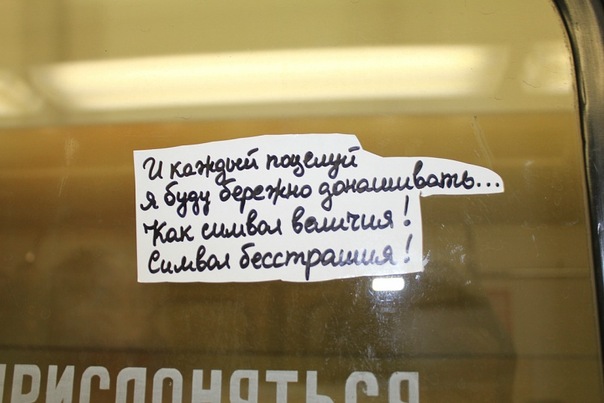 И каждый поцелуй
я буду бережно донашивать...
Как символ величия!
Символ бесстрашия!
ПРИСЛОНЯТЬСЯ